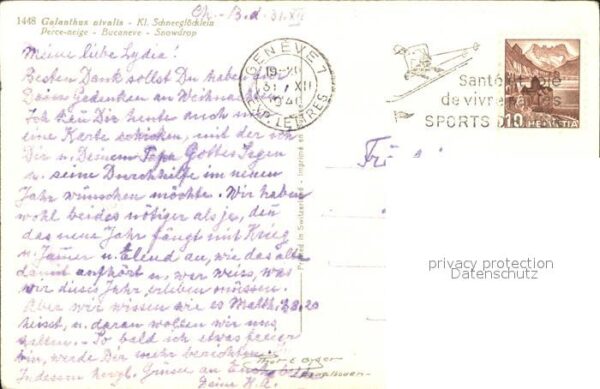 Ch.-B.d. 31.XII
1448 Galanthus nivalis - Kl. Schneeglöcklein
Perce-neige - Bucaneve - Snowdrop
Meine liebe Lydia!
Besten Dank sollst Du haben für
Dein Gedenken an Weihnachten.
Ich Dir heute auch
eine Karte schicken, mit der ich
Dir u. Deinem Papa Gottes Segen
u. seine Durchhilfe im neuen
Jahr wünschen möchte. Wir haben
wohl beides nötiger als je, denn
das neue Jahr fängt mit Krieg
u. Jammer u. Elend an, wie das alte
damit aufhört u. wer weiss, was
wir dieses Jahr erleben müssen.
Aber wir wissen wie es Matth. 28.20
heisst, u. daran wollen wir uns
halten. So bald ich etwas freier
bin, werde Dir mehr berichten.
Indessen herzl. Grüsse an
Deine H.A.
Printed in Switzerland - Imprimé en
GENÈVE 1
19-XII
31.XII
1940
EXP. LETTRES
Santé et joie
de vivre par les
SPORTS D'HIVER
10
HELVETIA
privacy protection
Datenschutz